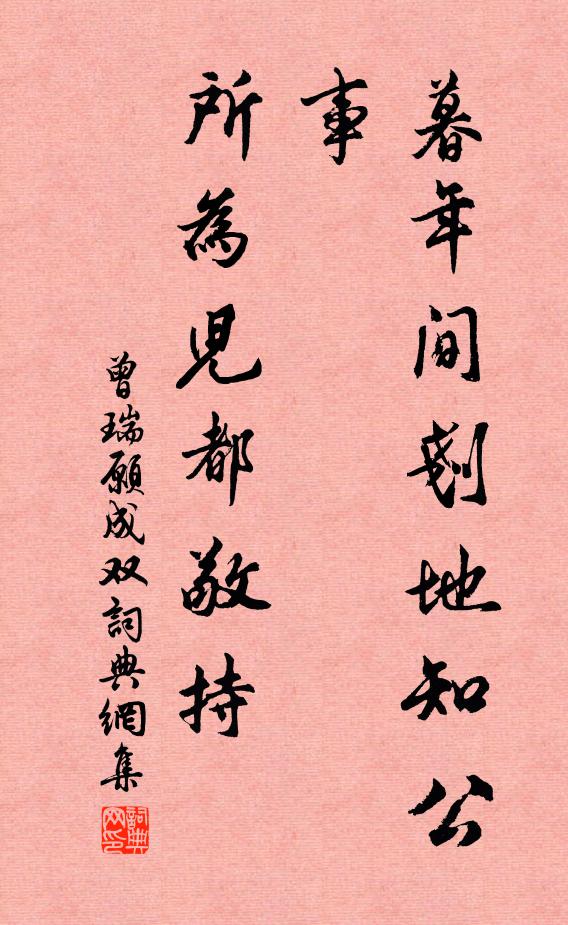 暮年間剗地知公
事
所為兒都敬持
曾瑞願成双詞典網集
詞典
网印